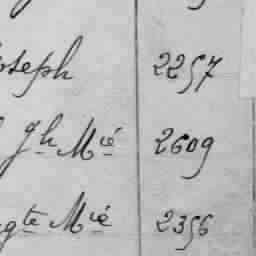 oseph 2257
gh Mié 2609
gte Mié 2356